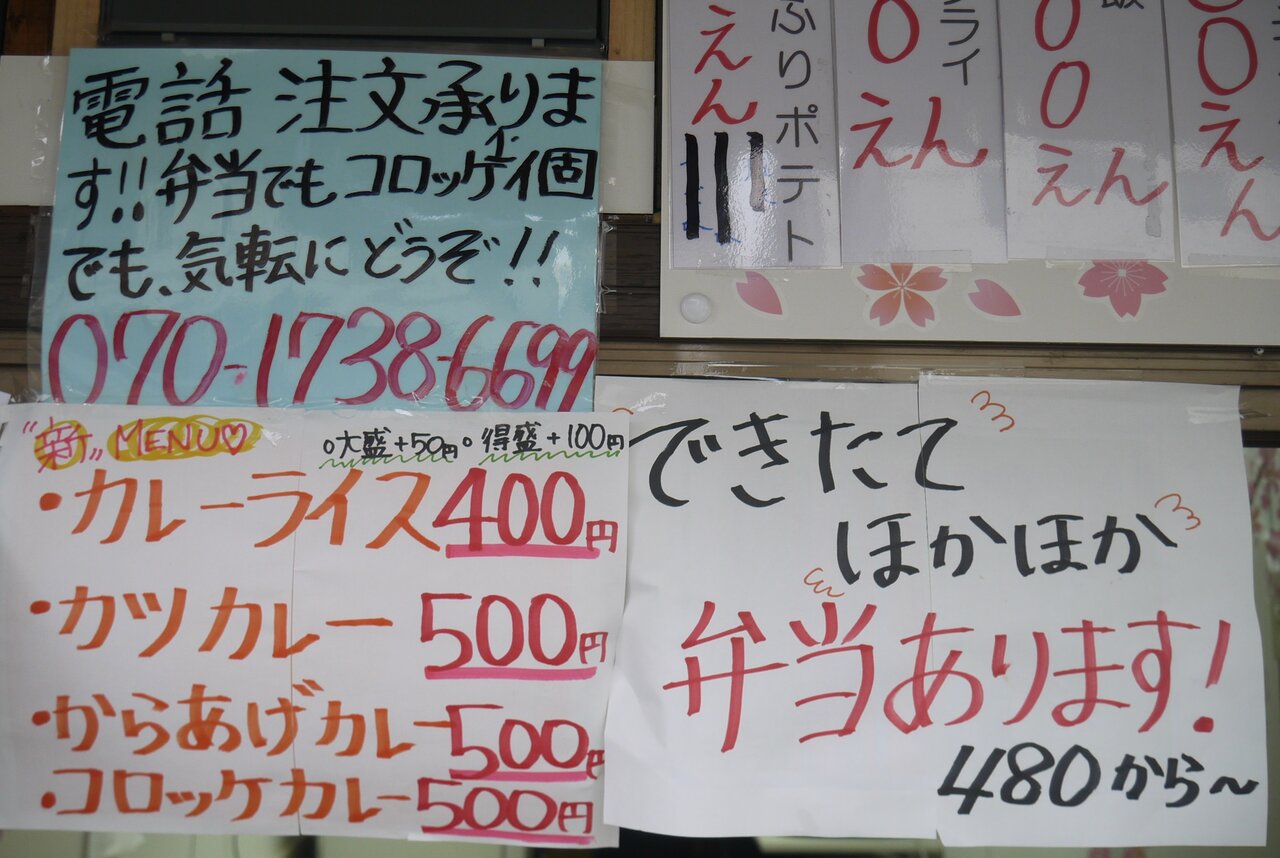 電話 注文承りま
す!!弁当でもコロッケ1個
でも、気転にどうぞ!!
070-1738-6699
ふりポテト
えん
ライ
0えん
00えん
00えん
"新" MENU♡
○大盛+50円○得盛+100円
・カレーライス400円
・カツカレー 500円
・からあげカレー500円
・コロッケカレー500円
できたて
ほかほか
弁当あります!
480から~